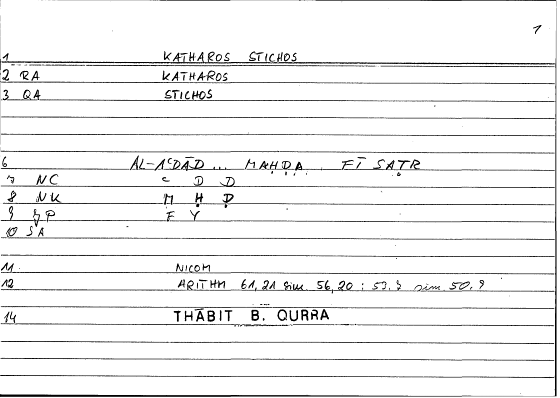 1
1 KATHAROS STICHOS
2 RA KATHAROS
3 QA STICHOS
6 AL-AʿDĀD ... MAḤḌA FĪ SAṬR
7 NC ʿ D D
8 NK M Ḥ Ḍ
9 P F Y
10 SA
11 NICOM
12 ARITHM 61,21 sim. 56,20 : 53.9 sim 50.9
14 THĀBIT B. QURRA